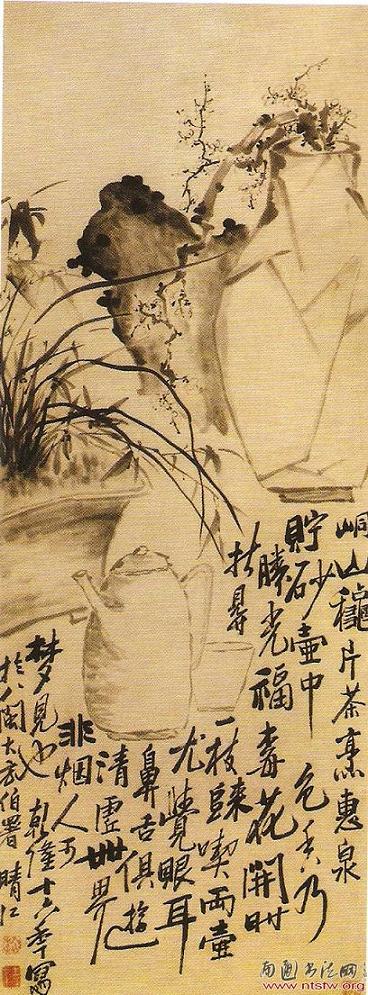 峒山龝片茶烹惠泉
貯砂壺中色香乃
勝光福梅花開時
折得
一枝歸喫兩壺
尤覺眼耳
鼻舌俱遊
清虛世界
非烟人可
梦見也乾隆十六季寫
扵八閩大方伯署晴江
南通书法网
www.ntsfw.org